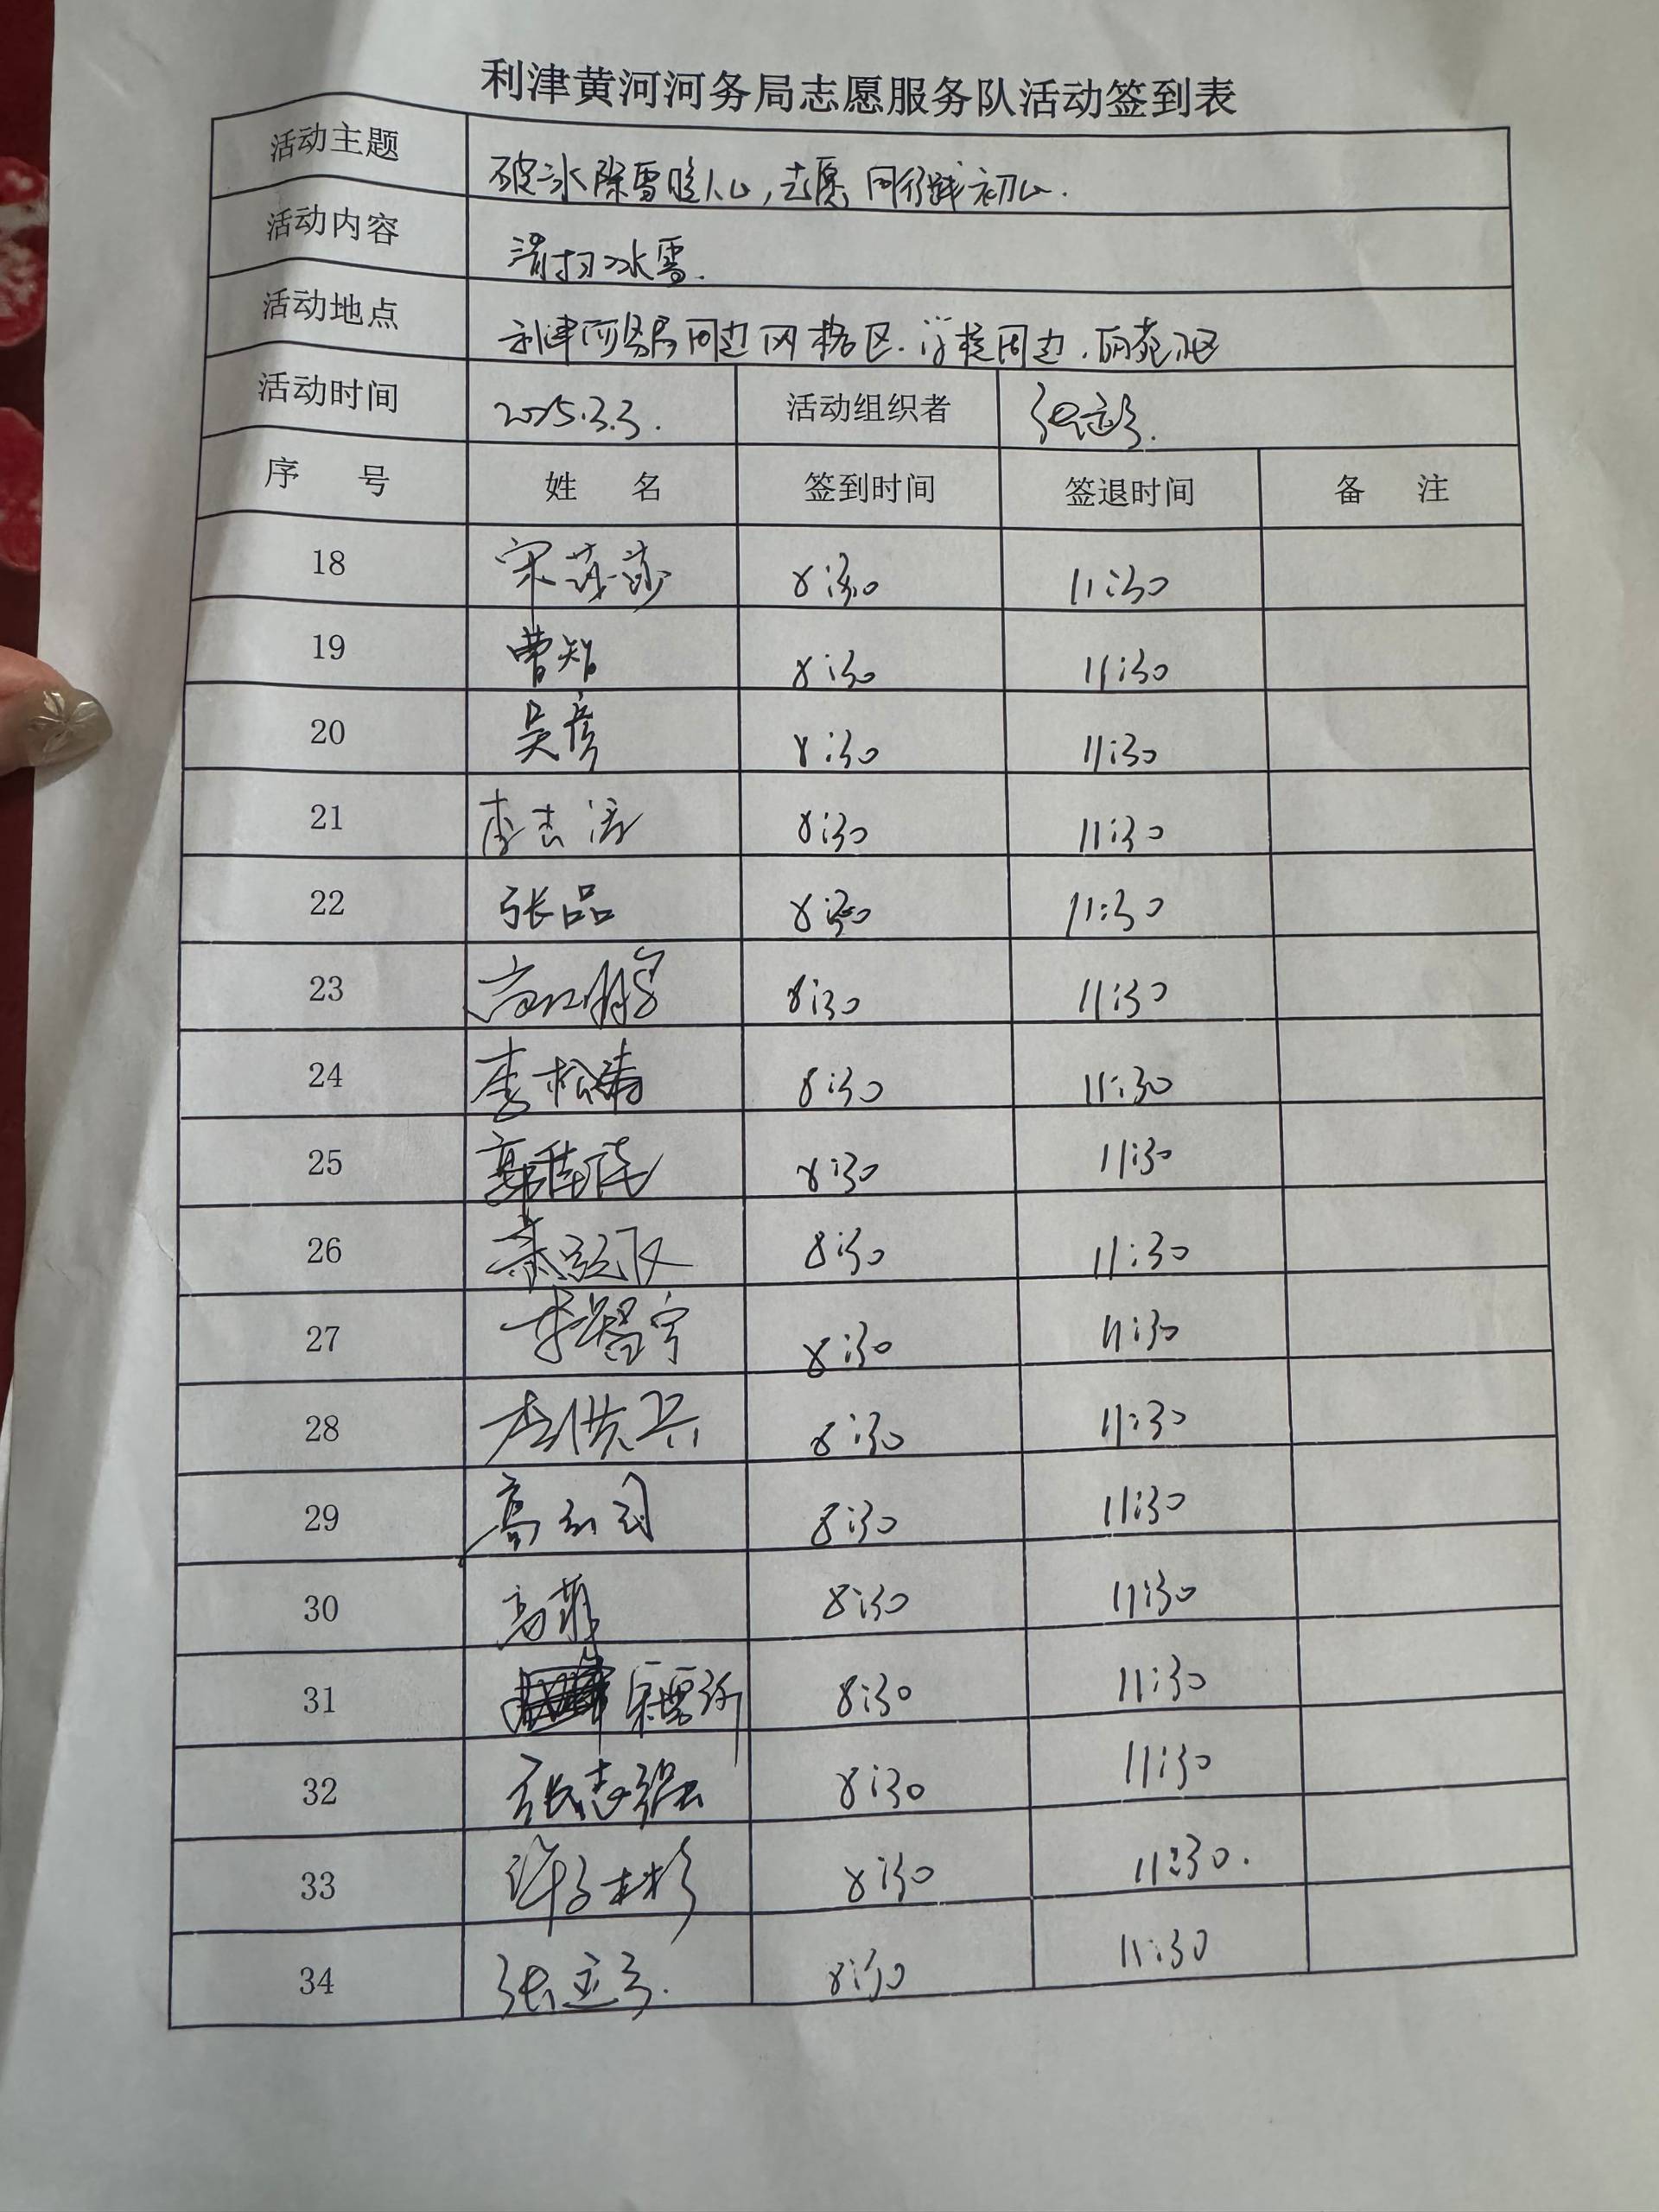 利津黄河河务局志愿服务队活动签到表
活动主题 破冰除雪暖人心,志愿同行践初心.
活动内容 清扫冰雪.
活动地点 利津河务局周边网格区.学校周边.丽苑小区
活动时间 2025.3.3. 活动组织者
序 号 姓 名 签到时间 签退时间 备 注
18 宋莎莎 8:30 11:30
19 曹智 8:30 11:30
20 吴彦 8:30 11:30
21 李志涛 8:30 11:30
22 张品 8:30 11:30
23 8:30 11:30
24 李松涛 8:30 11:30
25 8:30 11:30
26 8:30 11:30
27 李智宁 8:30 11:30
28 8:30 11:30
29 8:30 11:30
30 高菲 8:30 11:30
31 8:30 11:30
32 张志强 8:30 11:30
33 8:30 11:30.
34 8:30 11:30